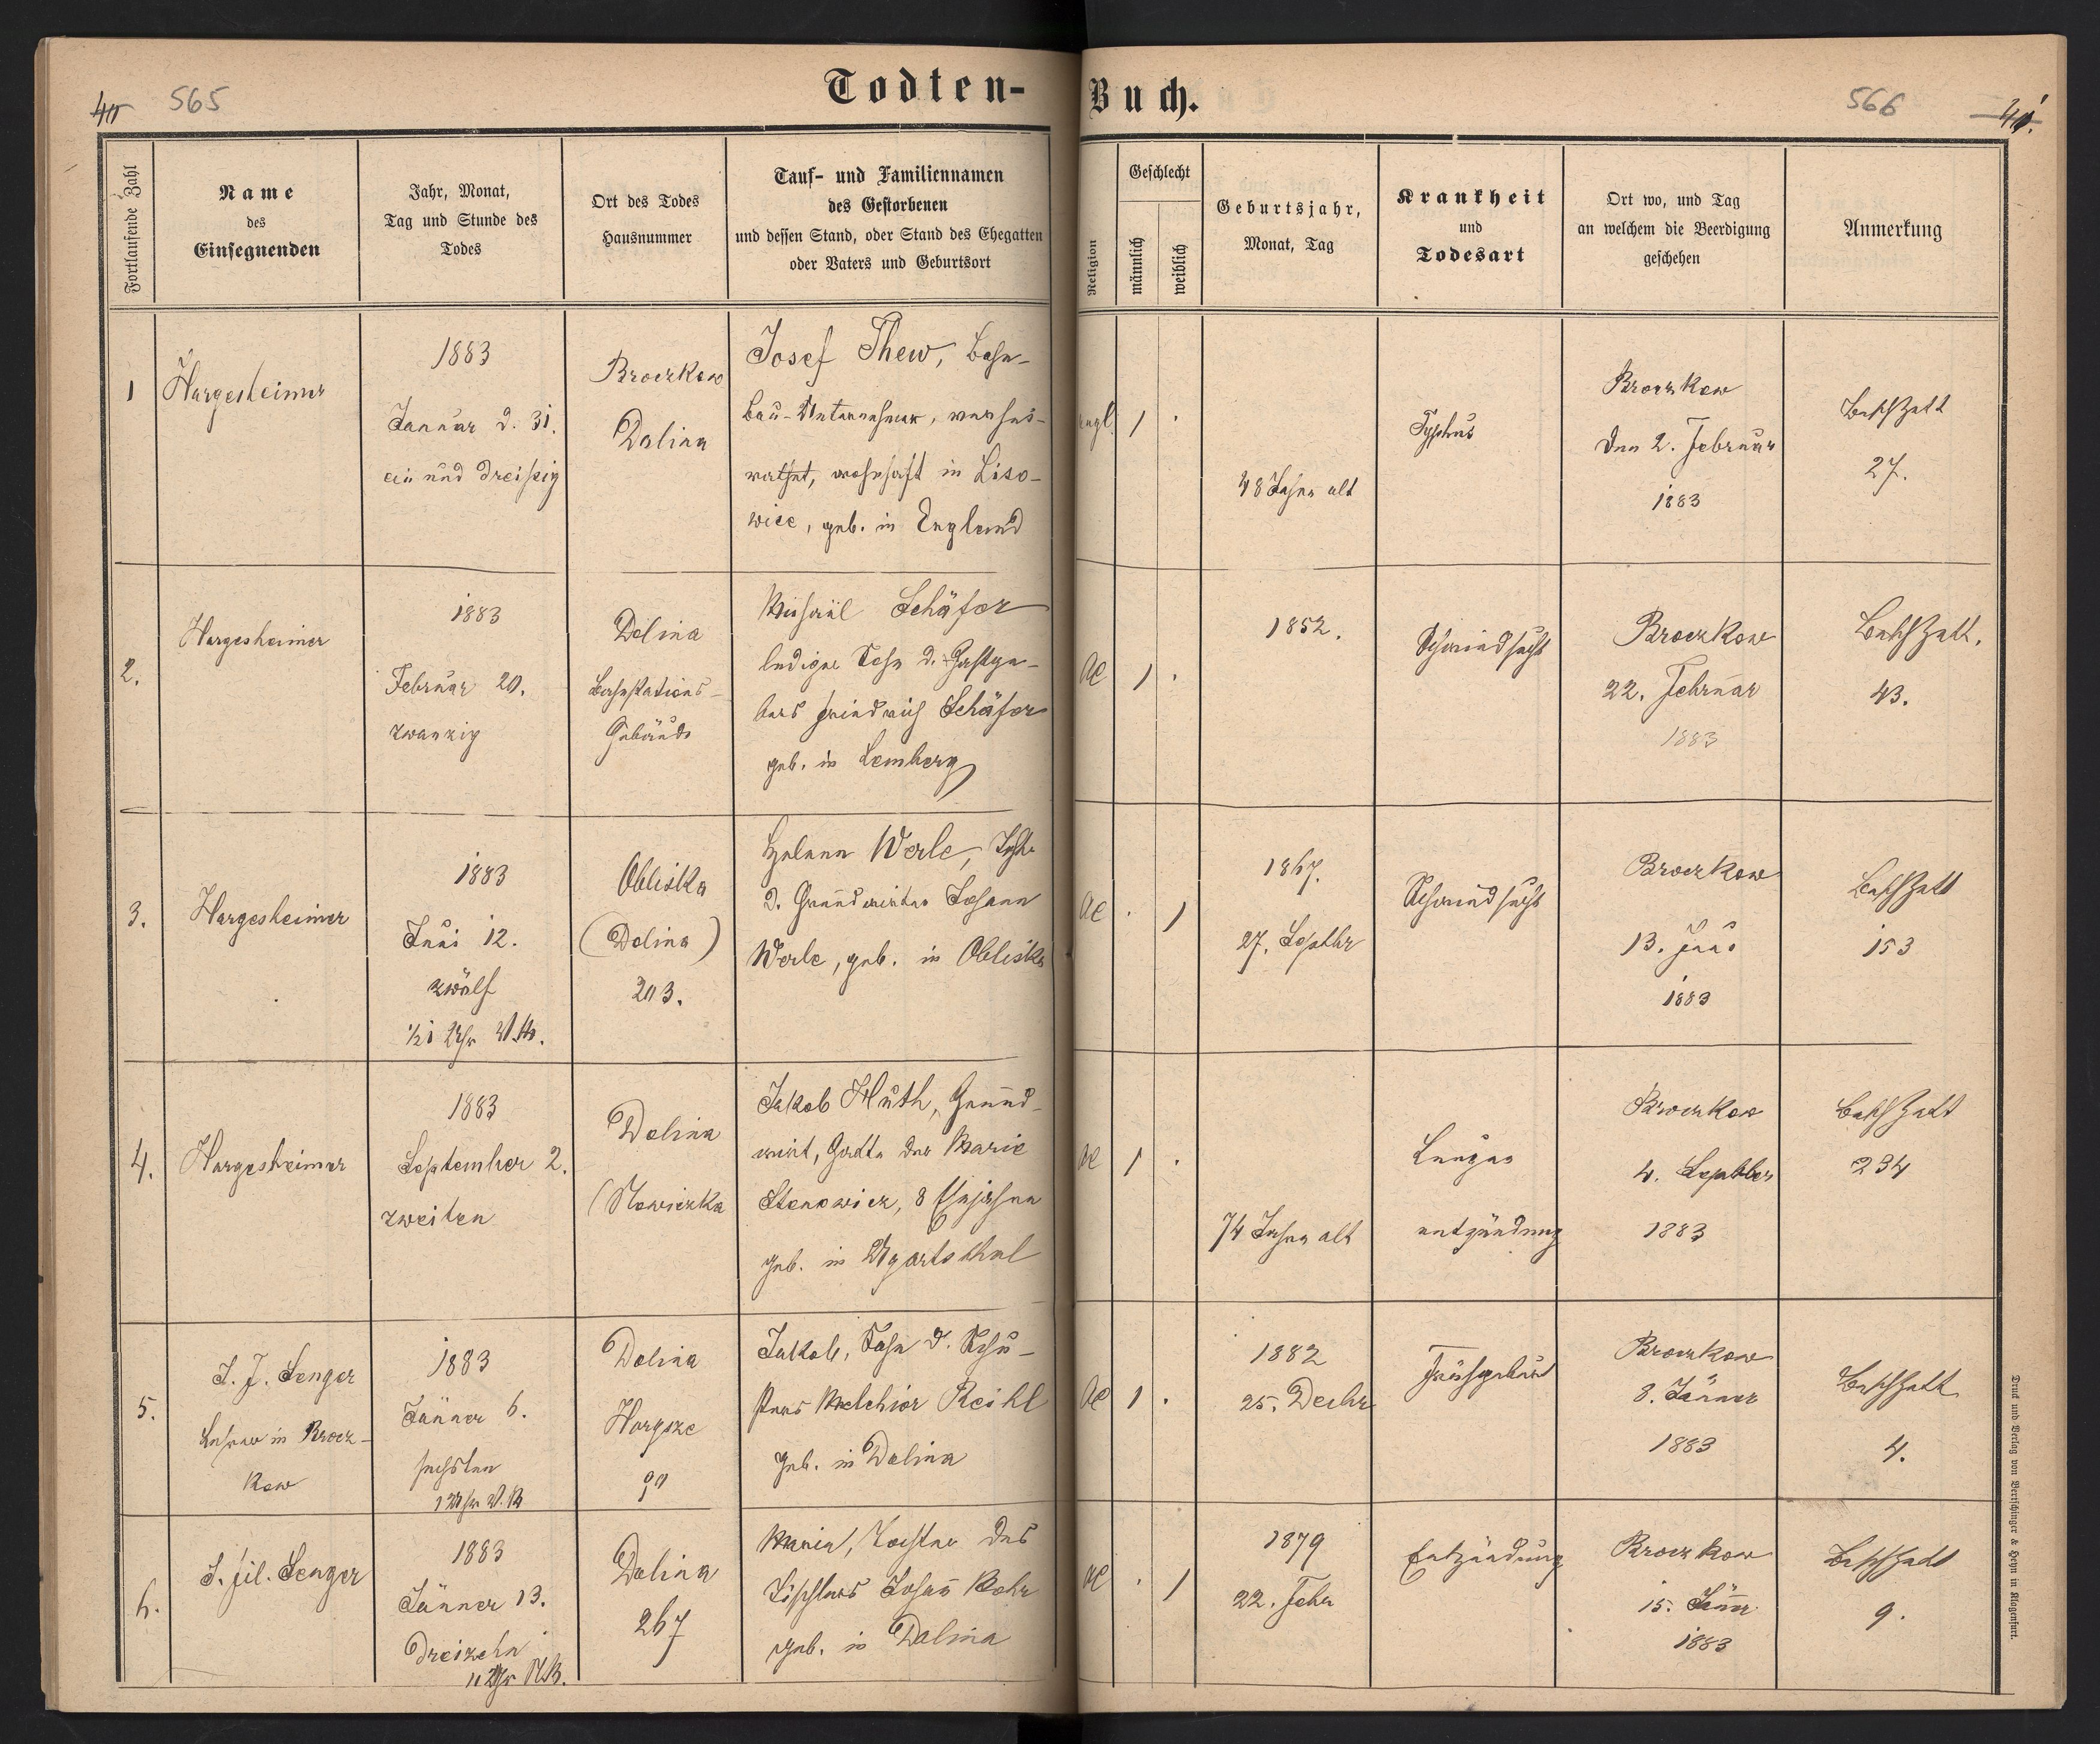 40 565
Todten-
Buch.
566 41.
Fortlaufende Zahl
Name
des
Einsegnenden
Jahr, Monat,
Tag und Stunde des
Todes
Ort des Todes
Hausnummer
Tauf- und Familiennamen
des Gestorbenen
und dessen Stand, oder Stand des Ehegatten
oder Vaters und Geburtsort
Religion
Geschlecht
männlich
weiblich
Geburtsjahr,
Monat, Tag
Krankheit
und
Todesart
Ort wo, und Tag
an welchem die Beerdigung
geschehen
Anmerkung
1
Hargesheimer
1883
Januar d. 31.
ein und dreißig
Broczkow
Dolina
Josef Thew, Bahn-
bau-Unternehmer, verhei-
rathet, wohnhaft in Liso-
wice, geb. in England
engl.
1 ·
48 Jahre alt
Typhus
Broczkow
den 2. Februar
1883
BeschZett
27.
2.
Hargesheimer
1883
Februar 20.
zwanzig
Dolina
Bahnstations-
Gebäude
Michael Schäfer
lediger Sohn d. Gastge-
bers Friedrich Schäfer
geb. in Lemberg
AC
1 ·
1852.
Schwindsucht
Broczkow
22. Februar
1883
BeschZett.
43.
3.
Hargesheimer
1883
Juni 12.
zwölf
½1 Uhr
Obliska
(Dolina)
203.
Helena Werle, Tocht.
d. Grundwirten Johann
Werle, geb. in Obliska
AC
· 1
1867.
27. Septbr
Schwindsucht
Broczkow
13. Juni
1883
BeschZett
153
4.
Hargesheimer
1883
September 2.
zweiten
Dolina
(Nowiczka
Jakob Huth, Grund-
wirt, Gatte der Marie
Stenowicz, 8 Ehejahre
geb. in Ugartsthal
AC
1 ·
74 Jahre alt
Lungen
entzündung
Broczkow
4. Septber
1883
BeschZett
234
5.
J. J. Senger
Lehrer in Brocz-
kow
1883
Jänner 6.
sechsten
1 Uhr
Dolina
Hargsze
90
Jakob, Sohn d. Schu-
sters Melchior Reihl
geb. in Dolina
AC
1 ·
1882
25. Decbr
Frühgeburt
Broczkow
8. Jänner
1883
BeschZett
4.
6.
J. fil. Senger
1883
Jänner 13.
Dreizehn
11 Uhr
Dolina
267
Maria, Tochter des
Tischlers Johann Rohr
geb. in Dolina
AC
· 1
1879
22. Febr
Entzündung
Broczkow
15. Jänner
1883
BeschZett
9.
Druck und Verlag von Bertschinger & Heyn in Klagenfurt.